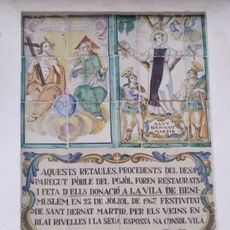 SANT
BERNAT
MARTIR
AQUESTS RETAULES, PROCEDENTS DEL DESA
PAREGUT POBLE DEL PUJOL, FOREN RESTAURATS
I FETA D'ELLS DONACIÓ A LA VILA DE BENI
MUSLEM EN 23 DE JOLIOL DE 1967, FESTIVITAT
DE SANT BERNAT MARTIR, PER ELS VEINS EN
BLAI RIVELLES I LA SEUA ESPOSSA NA CONSOL VILA